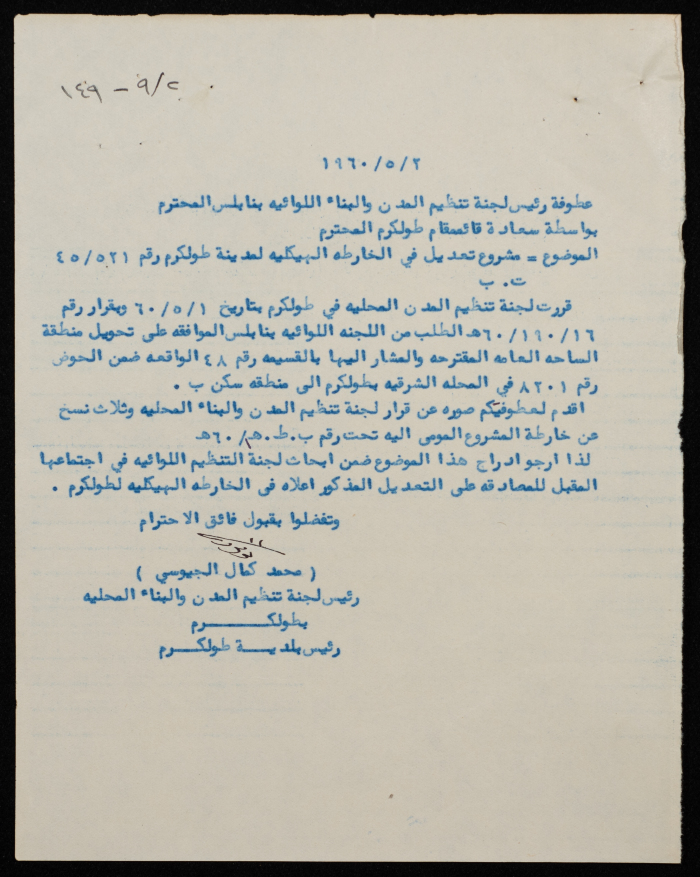 ٩/٢ – ١٤٩
١٩٦٠/٥/٢
عطوفة رئيس لجنة تنظيم المدن والبناء اللوائيه بنابلس المحترم
بواسطة سعادة قائمقام طولكرم المحترم
الموضوع = مشروع تعديل في الخارطه الهيكليه لمدينة طولكرم رقم ٤٥/٥٢١
ت. ب
قررت لجنة تنظيم المدن المحليه في طولكرم بتاريخ ٦٠/٥/١ وبقرار رقم
٦٠/١٩٠/١٦هـ الطلب من اللجنه اللوائيه بنابلس الموافقه على تحويل منطقة
الساحه العامه المقترحه والمشار اليها بالقسيمه رقم ٤٨ الواقعه ضمن الحوض
رقم ٨٢٠١ في المحله الشرقيه بطولكرم الى منطقه سكن ب .
اقدم لعطوفتكم صوره عن قرار لجنة تنظيم المدن والبناء المحليه وثلاث نسخ
عن خارطة المشروع المومى اليه تحت رقم ب.ط.هـ/٦٠هـ
لذا ارجو ادراج هذا الموضوع ضمن ابحاث لجنة التنظيم اللوائيه في اجتماعها
المقبل للمصادقه على التعديل المذكور اعلاه في الخارطه الهيكليه لطولكرم .
وتفضلوا بقبول فائق الاحترام
( محمد كمال الجيوسي )
رئيس لجنة تنظيم المدن والبناء المحليه
بطولكــــــــرم
رئيس بلديـــة طولكـــرم